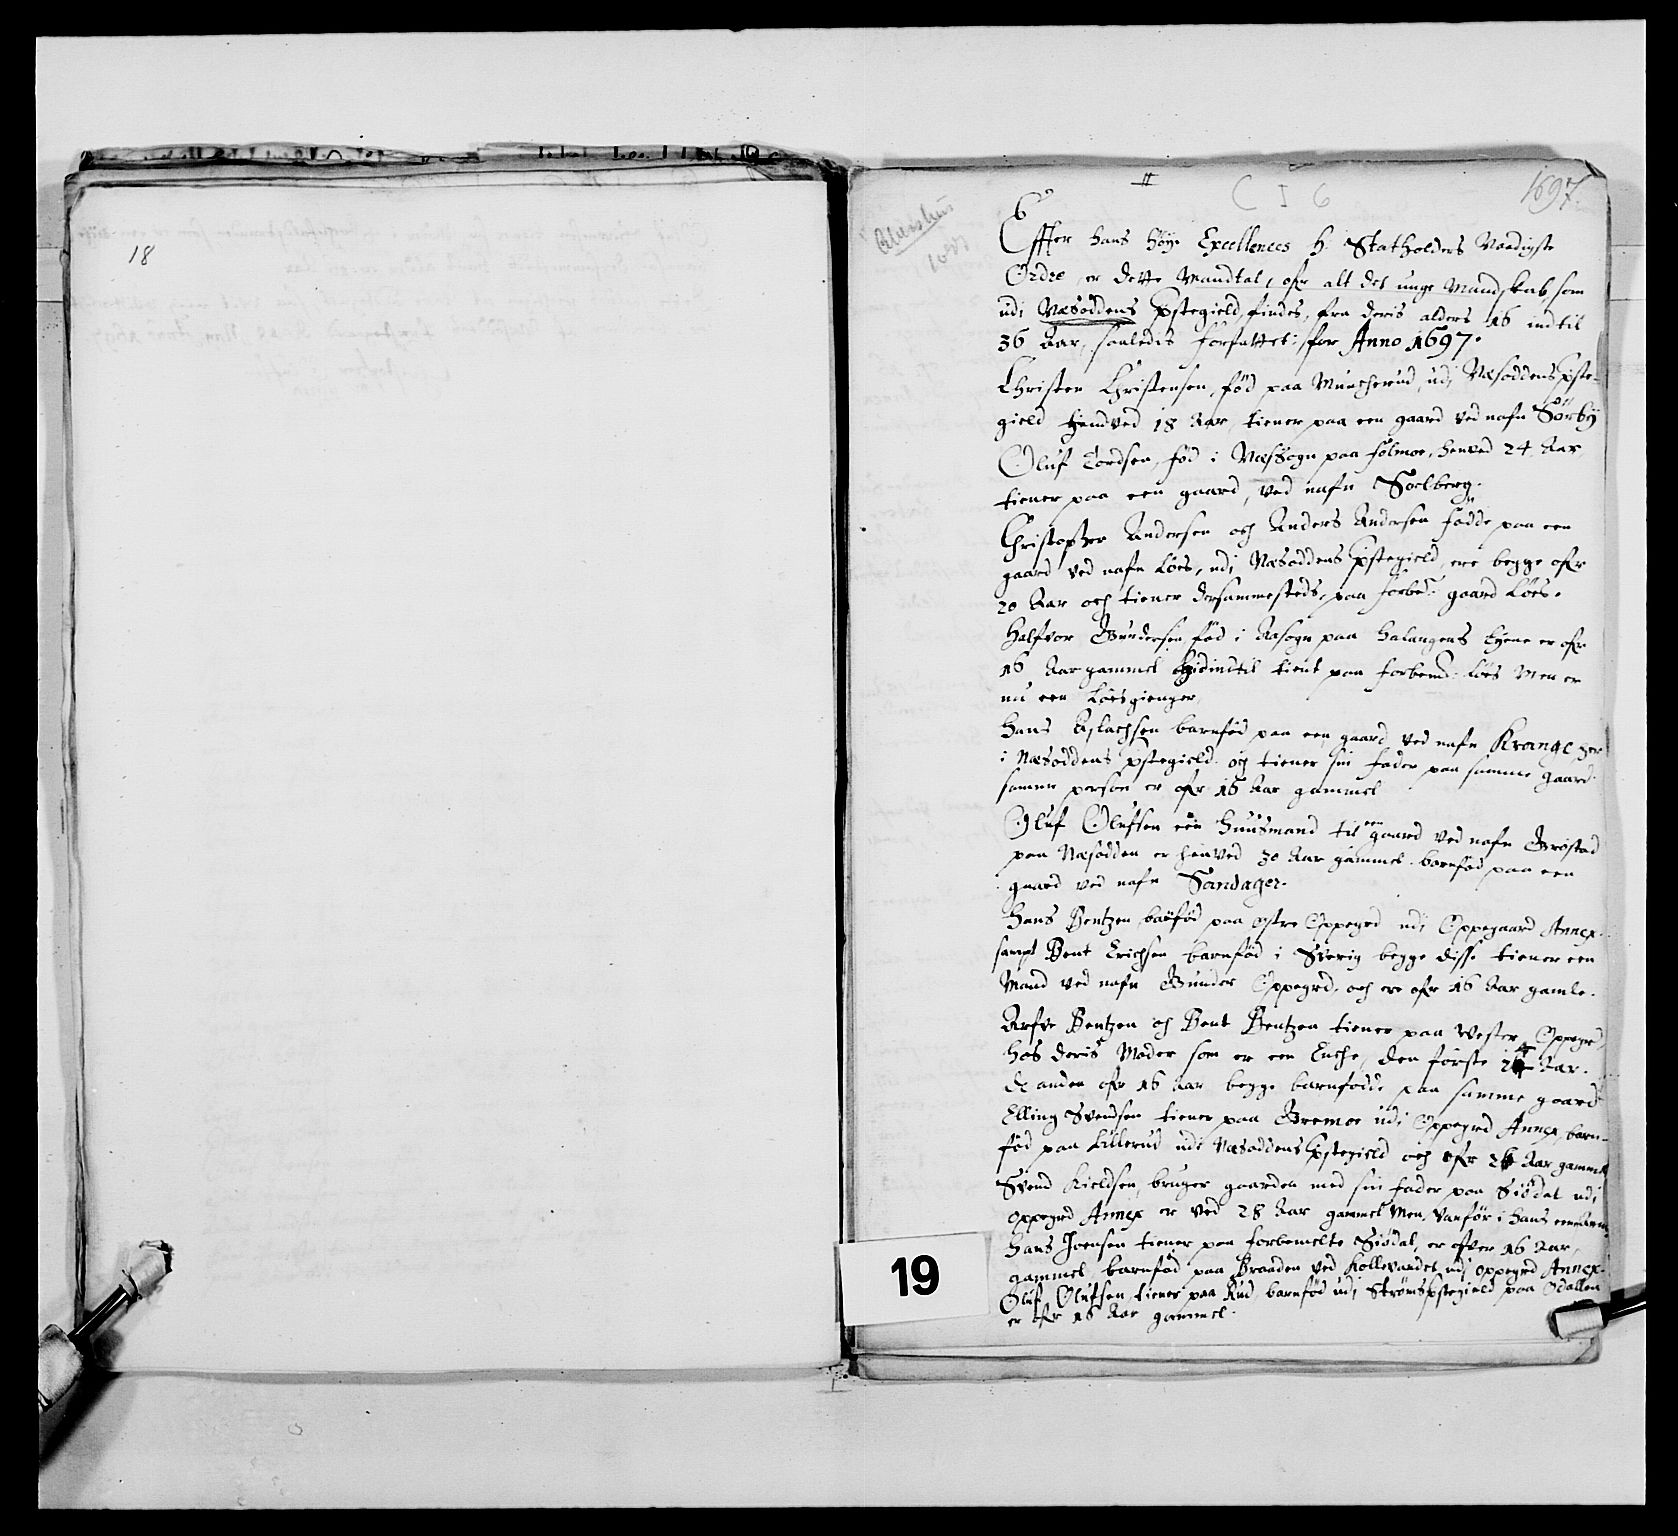 18
II
C I 6
1697.
6
Effter Hans Höye Excellences H. Statholders Naadigste
Ordre er dette Mandtal, ofr alt det unge Mandskab som
udi Næsoddens Pstegield findes, fra deris alders 16 indtil
36 Aar, saaledis forfattet: for Anno 1697.
Christen Christensen, föd paa Muncherud, udi Næsoddens Pste-
gield henved 18 Aar, tiener paa een gaard ved nafn Sörby
Oluf Tordsen, föd i Næssogn paa Holmoe, henved 24 Aar,
tiener paa een gaard, ved nafn Soelberg.
Christopher Andersen och Anders Andersen födde paa een
gaard ved nafn Löes, udi Næsoddens Pstegield, ere begge ofr
20 Aar och tiener dersammesteds, paa forbe: gaard Löes.
Halfvor Gundersen, föd i Aasogn paa Halangens Eyene er ofr
16 Aar gammel hidindtil tient paa forbemd: Löes Men er
nu een Löesgienger,
Hans Aslachsen barnföd paa een gaard ved nafn Krange
i Næsoddens pstegield. och tiener sin fader paa samme gaard
samme person er ofr 16 Aar gammel
Oluf Olufsen een Huusmand til een gaard ved nafn Grostad
paa Næsodden er henved 30 Aar gammel. barnföd paa een
gaard ved nafn Sandager.
Hans Bentzen, baëföd paa ostre Oppegrd udi Oppegaard Annex.
sampt Bent Erichsen barnföd i Sverig begge disse tiener een
Mand ved nafn Gunder Oppegrd, och ere ofr 16 Aar gamle.
Arfve Bentzen och Bent Bentzen tiener paa Vester Oppegrd,
hos deris Moder som er een Enche, den förste 24 Aar.
de anden ofr 16 Aar begge barnfödde paa samme gaard
Elling Svendsen tiener paa Gremoe udi Oppegrd Annex, barn-
föd paa Lillerud udi Næsoddens Pstegield och ofr 26 Aar gammel
Svend Kieldsen, bruger gaarden med sin fader paa Siödal udi
Oppegrd Annex er ved 28 Aar gammel Men, Vanför i hans
Hans Joensen tiener paa forbemelte Siödal, er ofver 16 Aar,
gammel, barnföd paa Braaden ved Kollevandet udi Oppegrd Annex.
Oluf Olufsen tiener paa Rud, barnföd udi Strömspstegield paa Odallen
er ofr 16 Aar gammel.
19